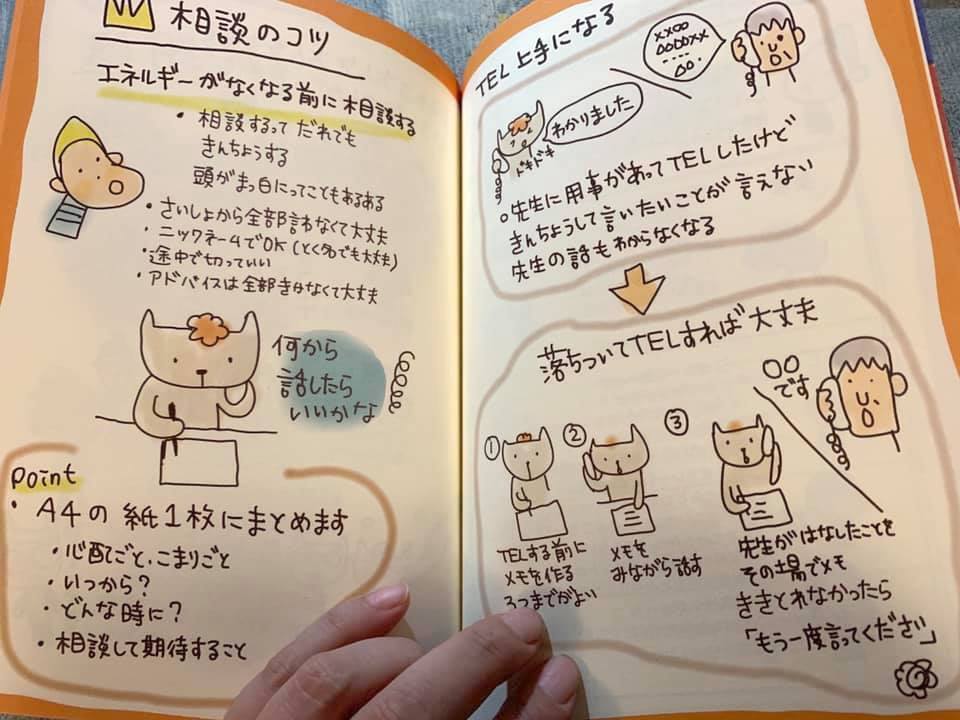 相談のコツ
エネルギーがなくなる前に相談する
・相談するって だれでも
きんちょうする
頭がまっ白にってこともあるある
・さいしょから全部言わなくて大丈夫
・ニックネームでOK(とく名でも大丈夫)
・途中で切っていい
・アドバイスは全部きかなくて大丈夫
何から
話したら
いいかな
Point
・A4の紙1枚にまとめます
・心配ごと、こまりごと
・いつから?
・どんな時に?
・相談して期待すること
TEL上手になる
××○○
△○○○××
----
△○.
わかりました
ドキドキ
○先生に用事があってTELしたけど
きんちょうして言いたいことが言えない
先生の話もわからなくなる
落ちついてTELすれば大丈夫
○○
です
①
TELする前に
メモを作る
3つまでがよい
②
メモを
みながら話す
③
先生がはなしたことを
その場でメモ
ききとれなかったら
「もう一度言ってください」